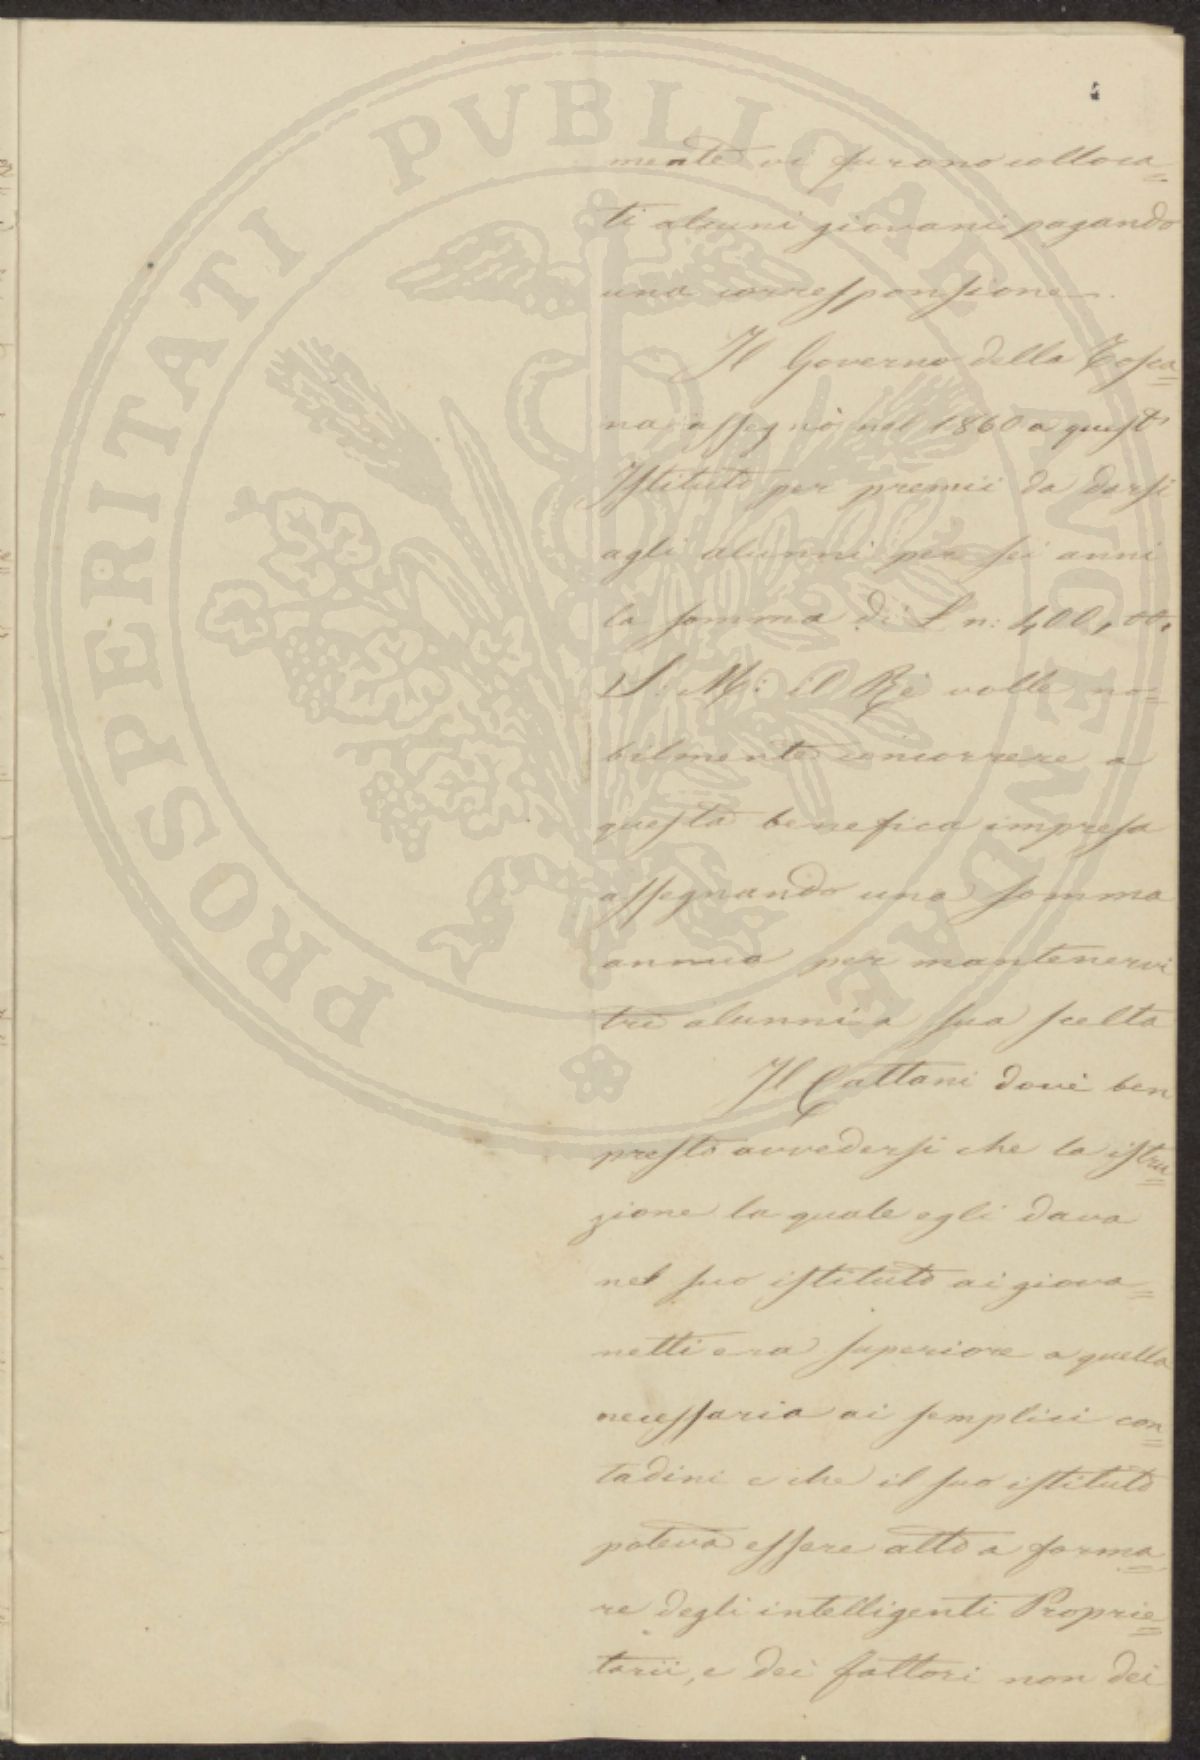 4
mente vi furono colloca=
ti alcuni giovani pagando
una corresponsione.
Il Governo della Tosca=
na assegnò nel 1860 a quest'
Istituto per premii da darsi
agli alunni per sei anni
la somma di L n: 400,00.
S: M: il Re volle no=
bilmente concorrere a
questa benefica impresa
assegnando una somma
annua per mantenervi
tre alunni a sua scelta
Il Cattani dovè ben
presto avvedersi che la istru=
zione la quale egli dava
nel suo istituto ai giova=
netti era superiore a quella
necessaria ai semplici con=
tadini e che il suo istituto
poteva essere atto a forma=
re degli intelligenti Proprie=
tarii, e dei fattori non dei
PROSPERITATI PVBLICAE AVGENDAE